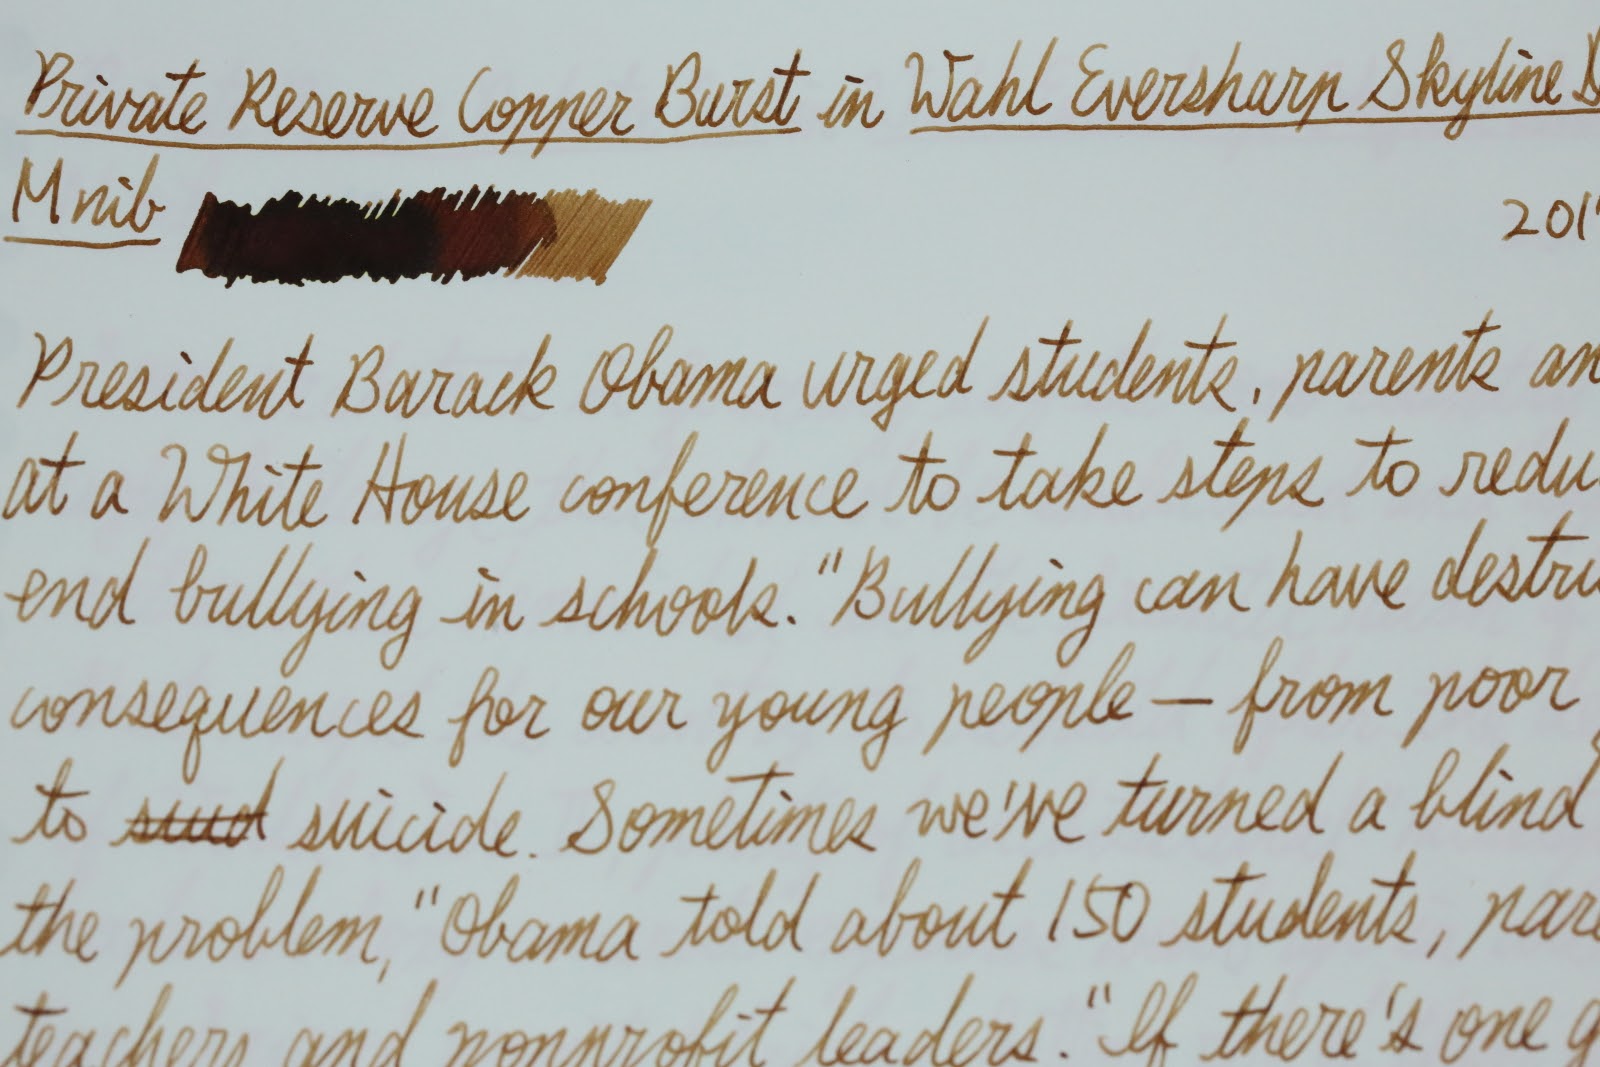 Private Reserve Copper Burst in Wahl Eversharp Skyline
M nib
201
President Barack Obama urged students, parents an
at a White House conference to take steps to redu
end bullying in schools. "Bullying can have destru
consequences for our young people — from poor
to suicide. Sometimes we've turned a blind
the problem," Obama told about 150 students, pare
teachers and nonprofit leaders. "If there's one g